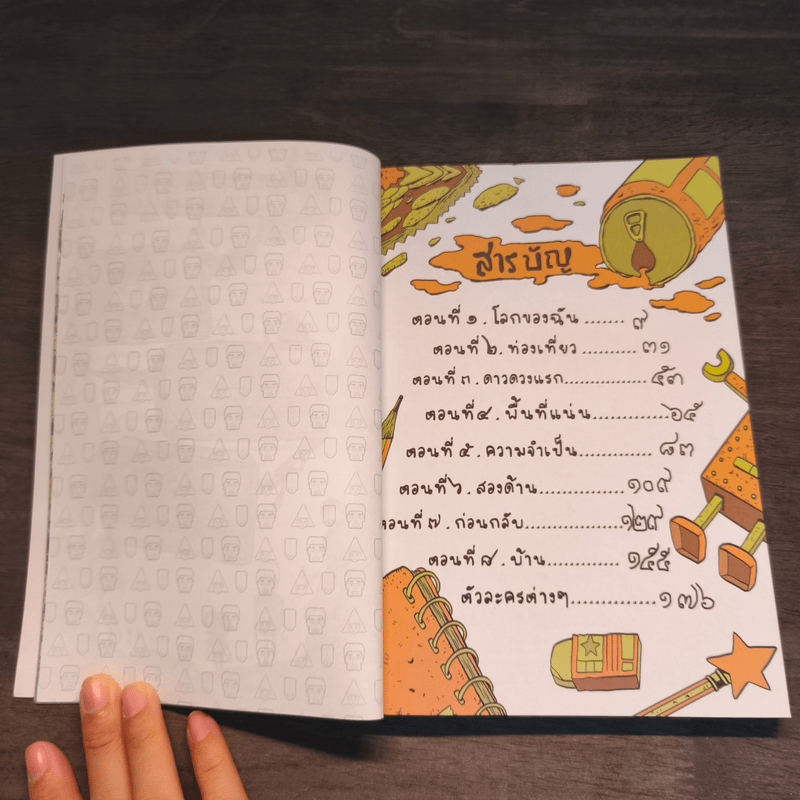 สารบัญ
ตอนที่ ๑. โลกของฉัน ....... ๙
ตอนที่ ๒. ท่องเที่ยว .......... ๓๑
ตอนที่ ๓. ดาวดวงแรก............... ๕๓
ตอนที่ ๔. พื้นที่แน่น............. ๖๕
ตอนที่ ๕. ความจำเป็น............. ๘๓
ตอนที่ ๖. สองด้าน............... ๑๐๙
ตอนที่ ๗. ก่อนกลับ................. ๑๒๙
ตอนที่ ๘. บ้าน............. ๑๕๕
ตัวละครต่างๆ............... ๑๗๖